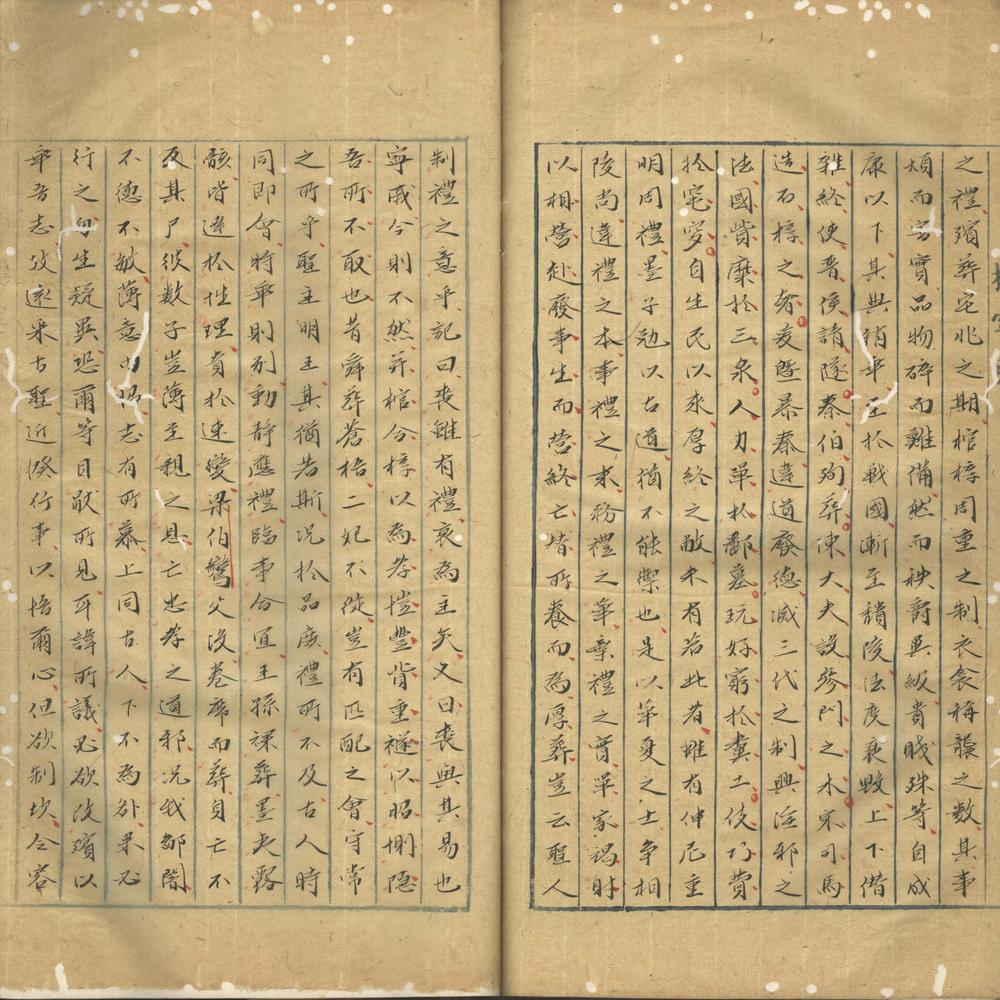 之禮殯葬宅兆之期棺椁周重之制衣衾稱襲之數其事
煩而害實品物碎而難備然而秩爵異級貴賤殊等自成
康以下其典稍乖至於戰國漸至積陵法度衰毀上下僭
雜終使晉侯請隧秦伯殉葬陳大夫設參門之木宋司馬
造石椁之奢爰暨暴秦違道廢德滅三代之制興淫邪之
法國貲糜於三泉人力單於酈墓玩好窮於糞土伎巧費
於窀穸自生民以來厚終之敝未有若此者雖有仲尼重
明周禮墨子勉以古道猶不能禦也是以華夏之士爭相
陵尚違禮之本事禮之末務禮之華棄禮之實單家竭財
以相營赴廢事生而營終亡替所養而為厚葬豈云聖人
制禮之意乎記曰喪雖有禮哀為主矣又曰喪與其易也
寧戚今則不然并棺合椁以為孝愷豐貲重襚以昭惻隱
吾所不取也昔舜葬蒼梧二妃不從豈有匹配之會守常
之所乎聖主明王其猶若斯況於品庶禮所不及古人時
同即會時乖則別動靜應禮臨事合宜王孫裸葬墨夷露
骸皆達於性理貴於速變梁伯鸞父沒卷席而葬身亡不
反其尸彼數子豈薄至親之恩亡忠孝之道邪況我鄙闇
不德不敏薄意內昭志有所慕上同古人下不為咎果必
行之勿生疑異恐爾等目猒所見耳諱所議必欲改殯以
乖吾志故遠采古聖近揆行事以悟爾心但欲制坎令容